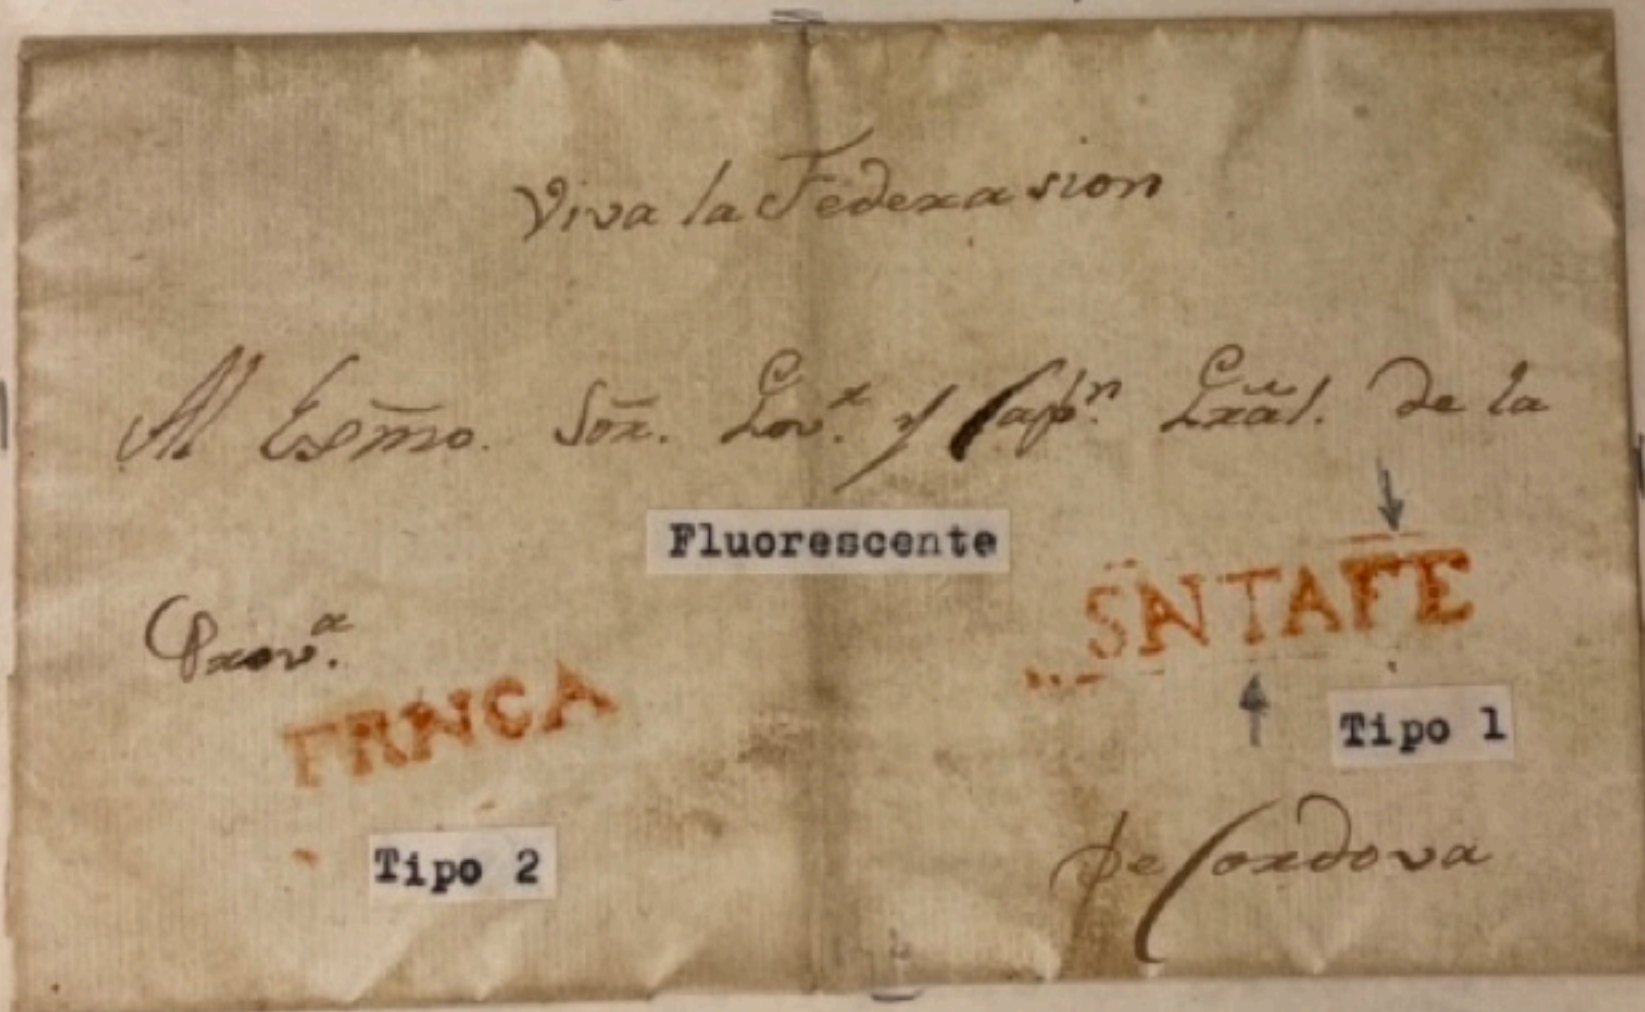 Viva la Federasion
Al Esm̃o. Sor̃. Gov.r y Cap.n Gr̃al. de la
Fluorescente
SNTAFE
Prov.a
FRNCA
Tipo 1
Tipo 2
de Cordova